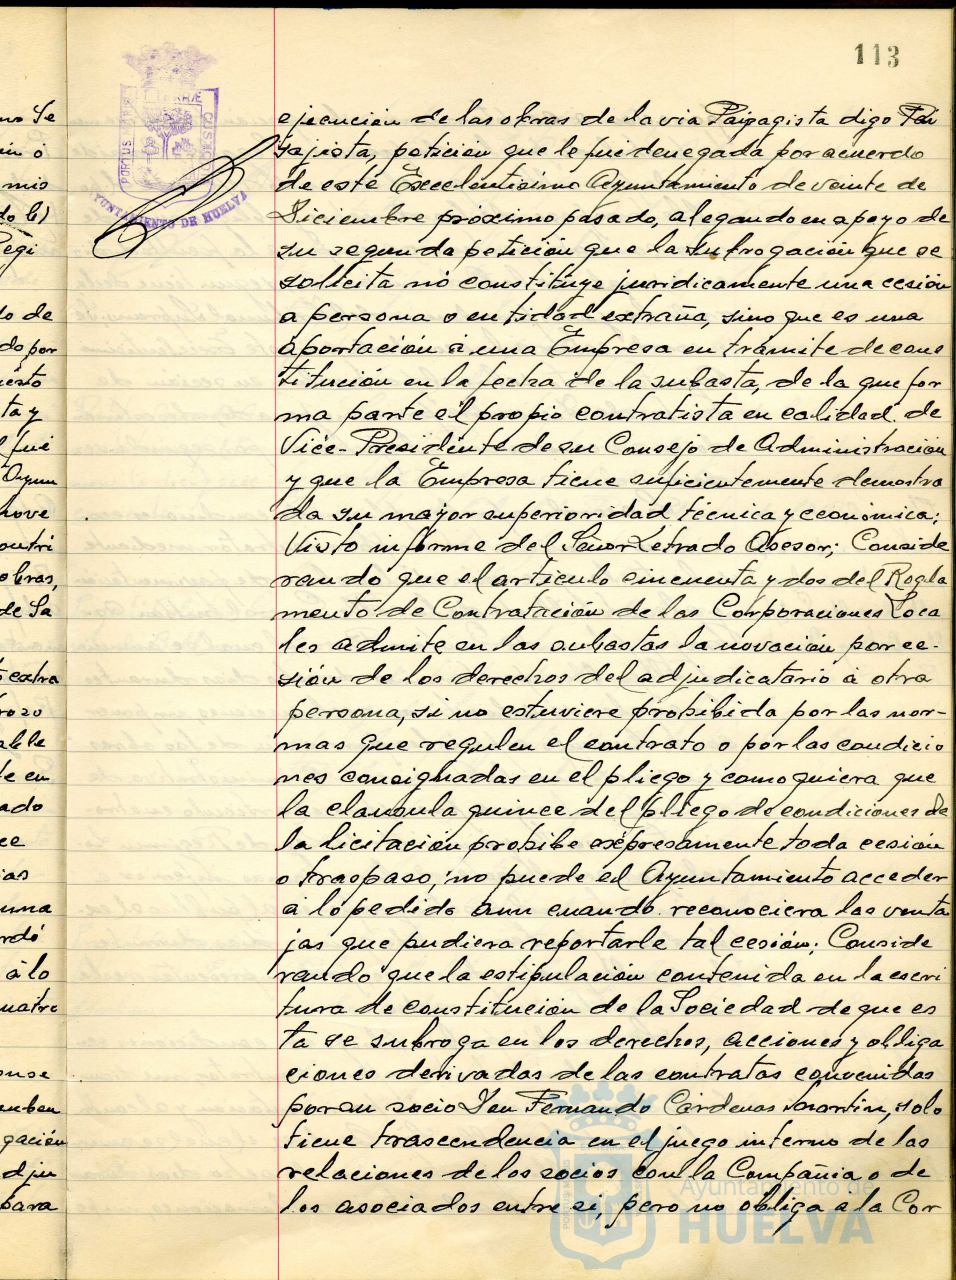 113
ejecución de las obras de la via Paipagista digo Pai
sajista, petición que le fué denegada por acuerdo
de este Excelentisimo Ayuntamiento de veinte de
Diciembre próximo pasado, alegando en apoyo de
su segunda petición que la subrogación que se
solicita no constituye juridicamente una cesión
a persona o entidad extraña, sino que es una
aportación a una Empresa en tramite de cons
titución en la fecha de la subasta, de la que for
ma parte el propio contratista en calidad de
Vice-Presidente de su Consejo de Administración
y que la Empresa tiene suficientemente demostra
da su mayor superioridad técnica y económica;
Visto informe del Señor Letrado Asesor; Conside
rando que el articulo cincuenta y dos del Regla
mento de Contratación de las Corporaciones Loca
les admite en las subastas la novación por ce-
sión de los derechos del adjudicatario a otra
persona, si no estuviere prohibida por las nor-
mas que regulen el contrato o por las condicio
nes consignadas en el pliego y como quiera que
la clausula quince del pliego de condiciones de
la licitación prohibe expresamente toda cesión
o traspaso, no puede el Ayuntamiento acceder
a lo pedido aun cuando reconociera las venta
jas que pudiera reportarle tal cesión; Conside
rando que la estipulación contenida en la escri
tura de constitución de la Sociedad de que es
ta se subroga en los derechos, acciones y obliga
ciones derivadas de las contratas convenidas
por su socio Don Fernando Cárdenas Martin, solo
tiene trascendencia en el juego interno de las
relaciones de los socios con la Compañia o de
los asociados entre si, pero no obliga a la Cor
AYUNTAMIENTO DE HUELVA
Ayuntamiento de
HUELVA